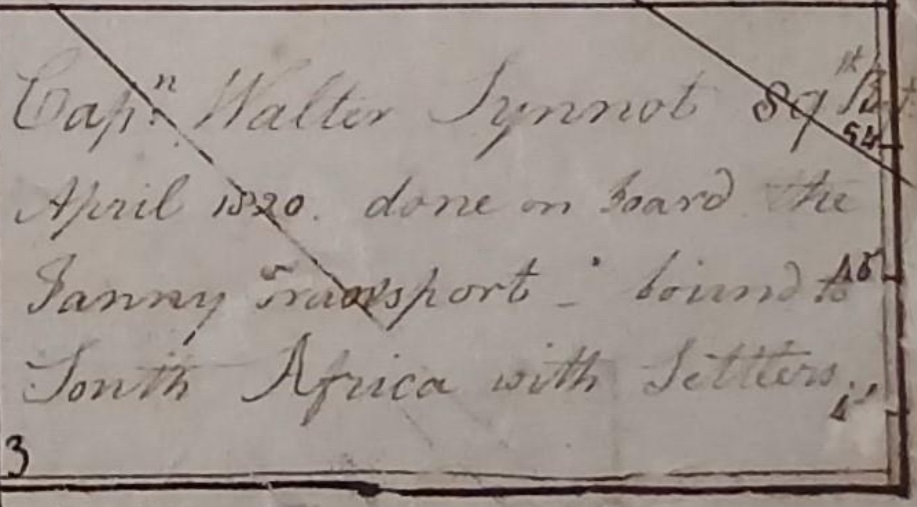 Capn. Walter Synnot 89
54
April 1820. done on board the
Fanny Transport - bound to
South Africa with Settlers.
3